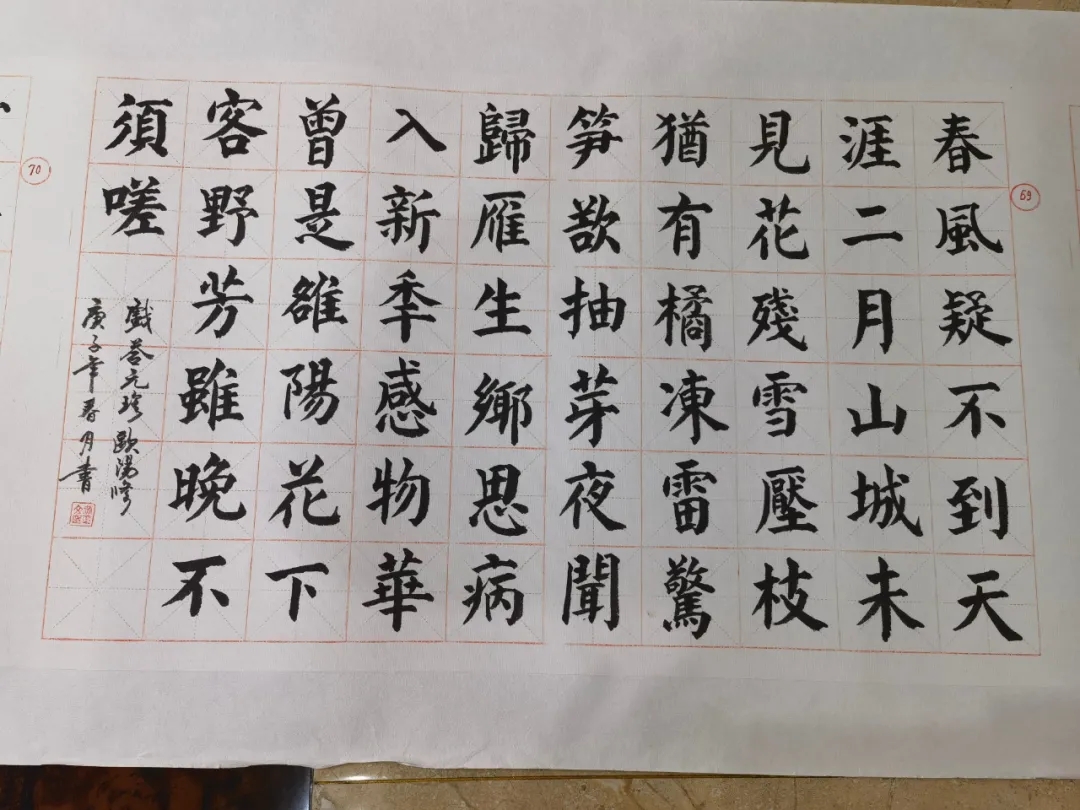 69
春風疑不到天
涯二月山城未
見花殘雪壓枝
猶有橘凍雷驚
笋欲抽芽夜聞
歸雁生鄉思病
入新秊感物華
曾是雒陽花下
客野芳雖晚不
須嗟
戲答元珍 歐陽修
庚子年春月書
70